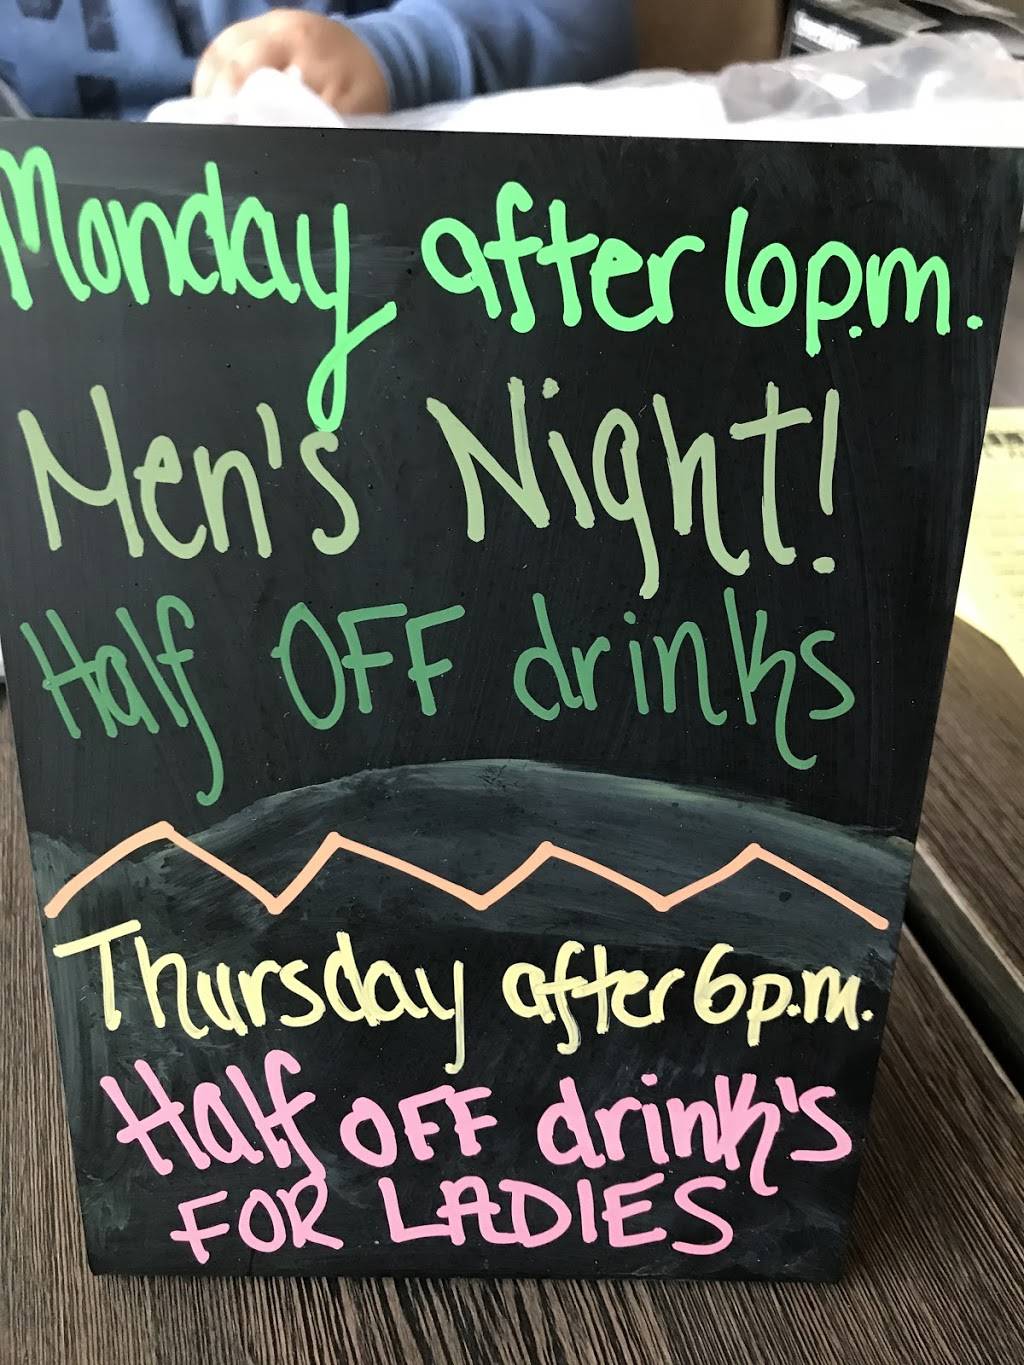 Monday after 6p.m.
Men's Night!
Half OFF drinks
Thursday after 6p.m.
Half OFF drink's
FOR LADIES